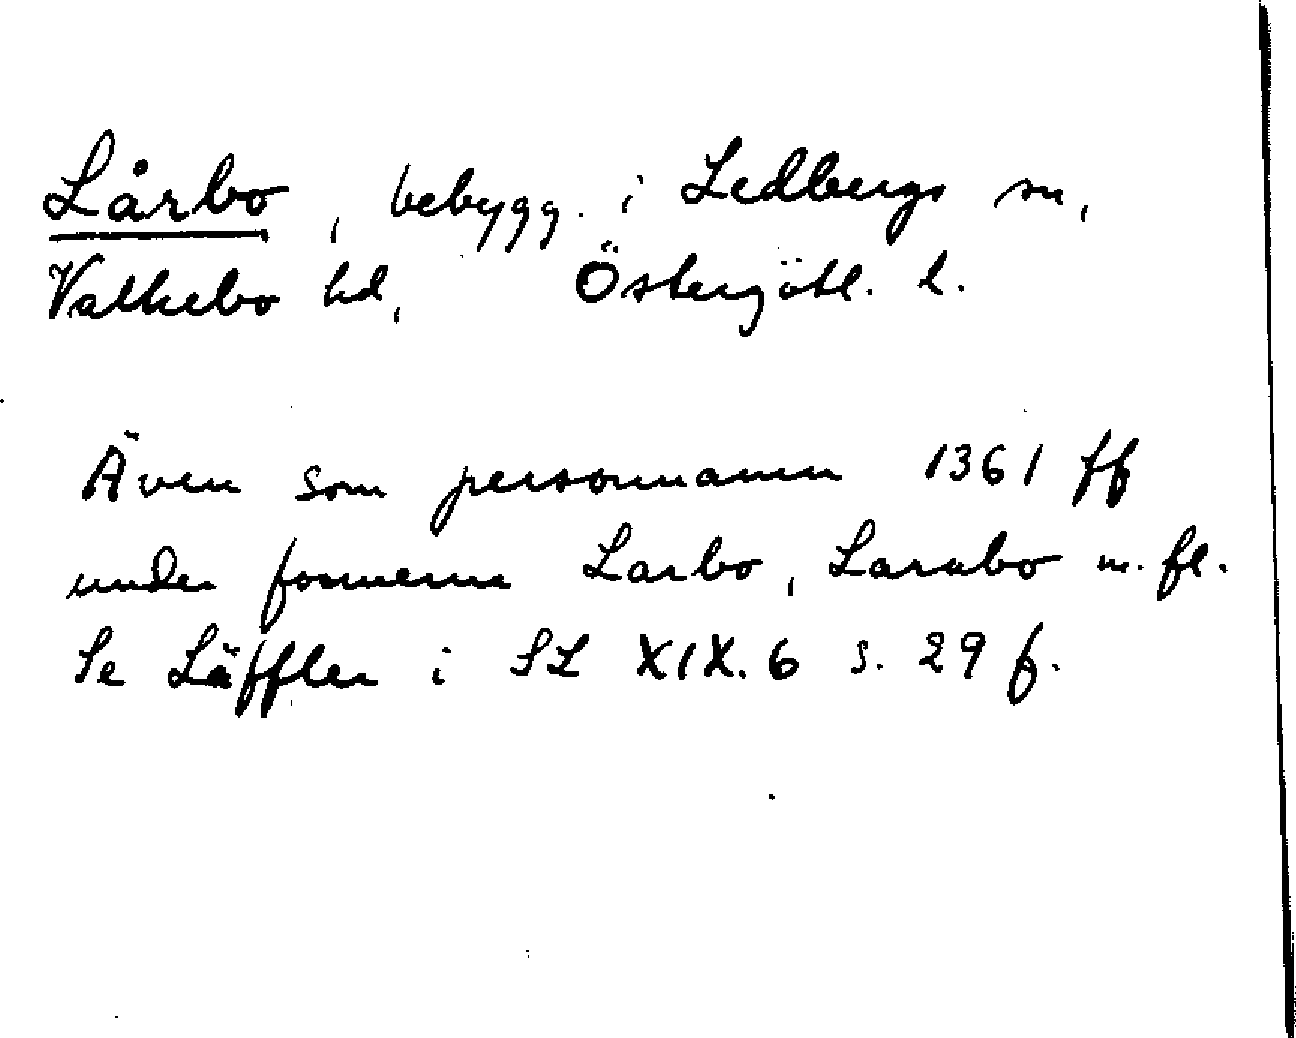 Lårbo, bebygg. i Ledbergs sn,
Valkebo hd, Östergötl. l.
Även som personnamn 1361 ff
under formerna Larbo, Larabo m. fl.
Se Läffler i SL XIX. 6 s. 29 f.